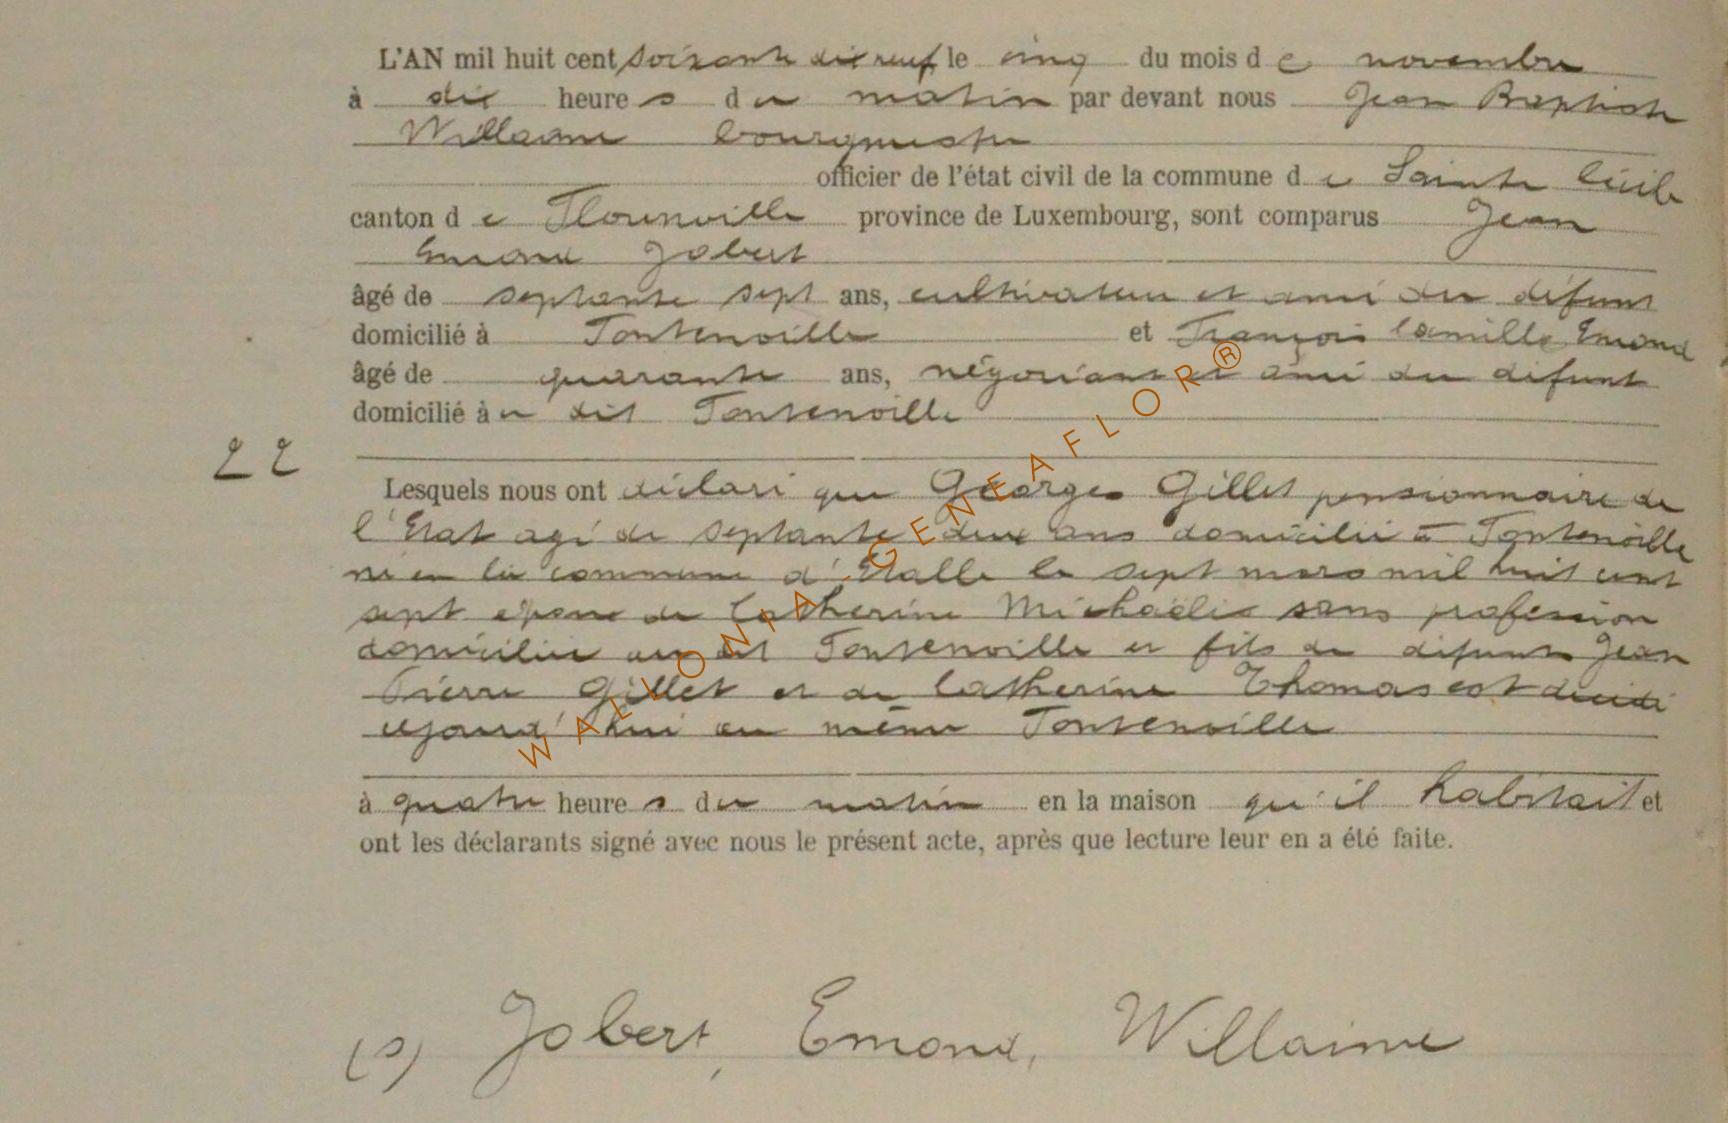 L'AN mil huit cent soixante dix neuf le cinq du mois de novembre
à dix heures du matin par devant nous Jean Baptiste
Willaime bourgmestre
officier de l'état civil de la commune de Sainte Cécile
canton de Florenville province de Luxembourg, sont comparus Jean
Emond Jobert
âgé de septante sept ans, cultivateur et ami du défunt
domicilié à Fontenoille et François Camille Emond
âgé de quarante ans, négociant et ami du défunt
domicilié au dit Fontenoille
22
Lesquels nous ont déclaré que Georges Gillet pensionnaire de
l'Etat agé de septante deux ans domicilié à Fontenoille
né en la commune d'Etalle le sept mars mil huit cent
sept époux de Catherine Michaëlis sans profession
domiciliée au dit Fontenoille et fils de défunts Jean
Pierre Gillet et de Catherine Thomas est décédé
cejourd'hui au même Fontenoille
à quatre heures du matin en la maison qu'il habitait et
ont les déclarants signé avec nous le présent acte, après que lecture leur en a été faite.
(s) Jobert, Emond, Willaime
WALLONIA-GENEAFLOR®